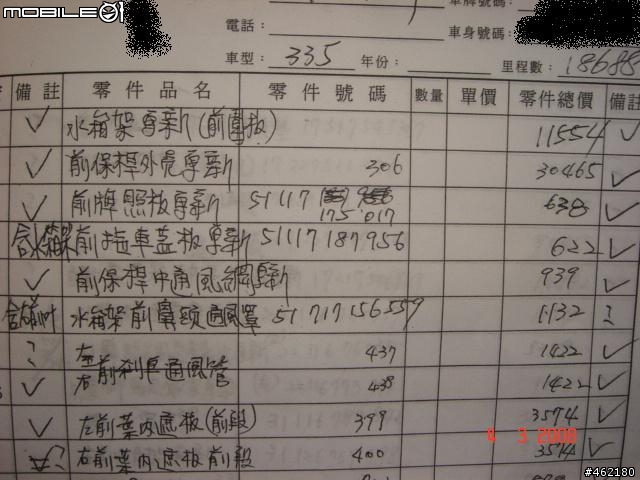 mobile01
車牌號碼:
電話:
車身號碼:
車型: 335 年份: 里程數: 18688
備註 零件品名 零件號碼 數量 單價 零件總價 備註
✓ 水箱架專新(前圍板) 11554 ✓
✓ 前保桿外壳專新 306 30465 ✓
✓ 前牌照板專新 51117 638 ✓
175 017
前拖車蓋板專新 51117187956 622 ✓
✓ 前保桿中通風網專新 939 ✓
水箱架前鼻頭通風罩 51 717 156559 1132 ?
? 左 437 1422 ✓
✓ 右前刹車通風管 438 1422 ✓
✓ 左前葉內遮板(前段) 399 3574 ✓
右前葉內遮板前段 400 3574 ✓
3 2008
#462180